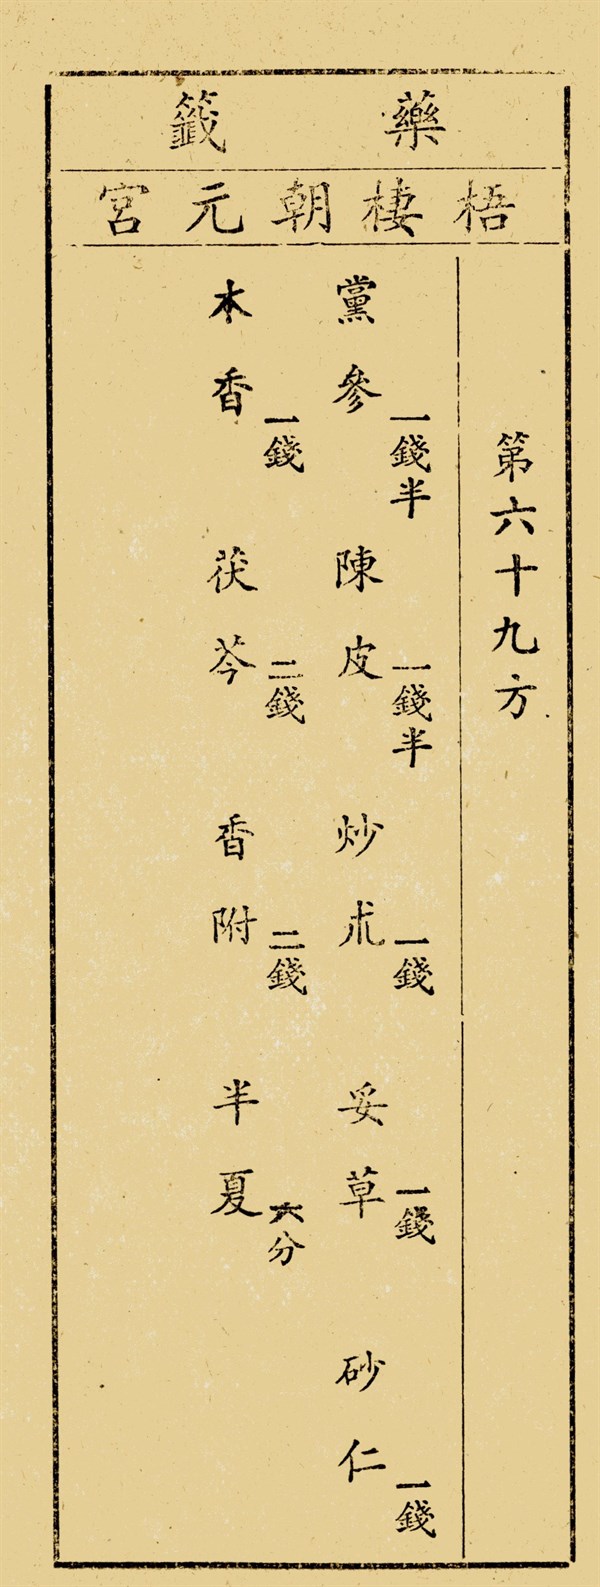 藥籤
梧棲朝元宮
第六十九方
黨參一錢半 陳皮一錢半 炒朮一錢 妥草一錢 砂仁一錢
木香一錢 茯苓二錢 香附二錢 半夏六分